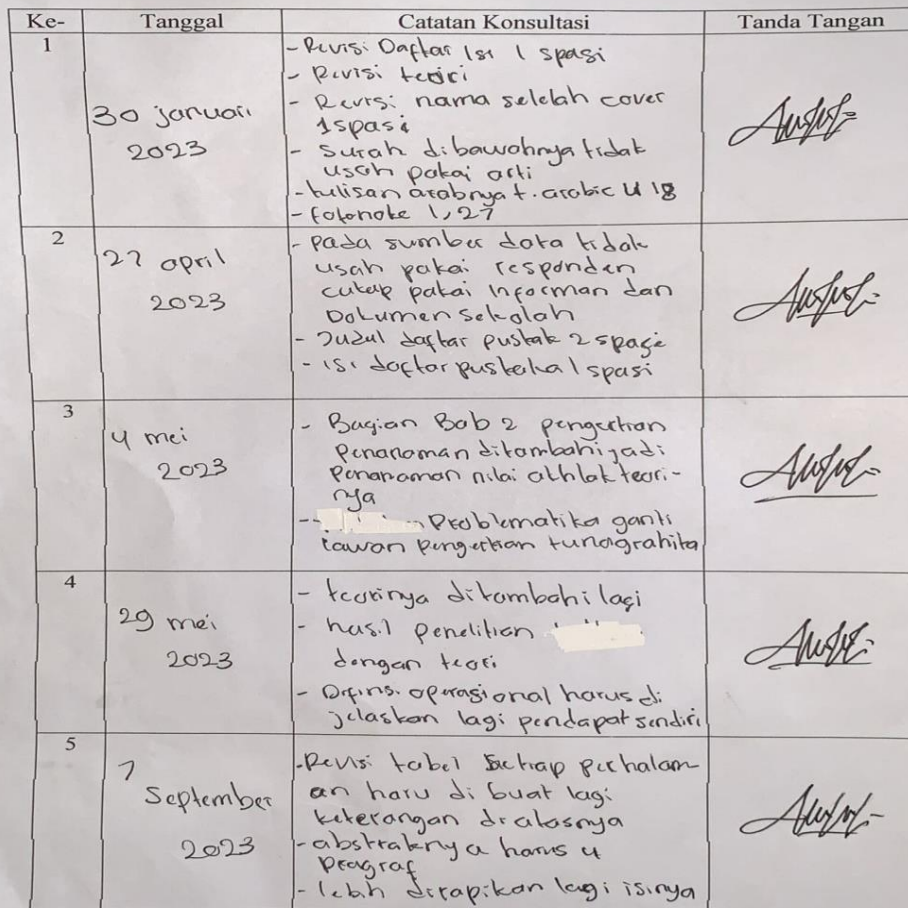 Ke- Tanggal Catatan Konsultasi Tanda Tangan
1
30 januari
2023
- Revisi Daftar Isi 1 spasi
- Revisi teori
- Revisi nama setelah cover
1 spasi
- Surah dibawahnya tidak
usah pakai arti
- tulisan arabnya t. arabic u 18
- fotonote 1,27
2
27 april
2023
- Pada sumber data tidak
usah pakai responden
cukup pakai Informan dan
Dokumen sekolah
- Judul daftar pustak 2 spasi
- isi daftar pustaka 1 spasi
3
4 mei
2023
- Bagian Bab 2 pengertian
Penanaman ditambahi jadi
Penanaman nilai akhlak teori-
nya
- Problematika ganti
lawan pengertian tunagrahita
4
29 mei
2023
- teorinya ditambahi lagi
- hasil penelitian
dengan teori
- Difinsi operasional harus di
jelaskan lagi pendapat sendiri
5
7
September
2023
- Revisi tabel Setiap perhalam-
an haru di buat lagi
keterangan diatasnya
- abstraknya harus 4
Pragraf
- lebih dirapikan lagi isinya